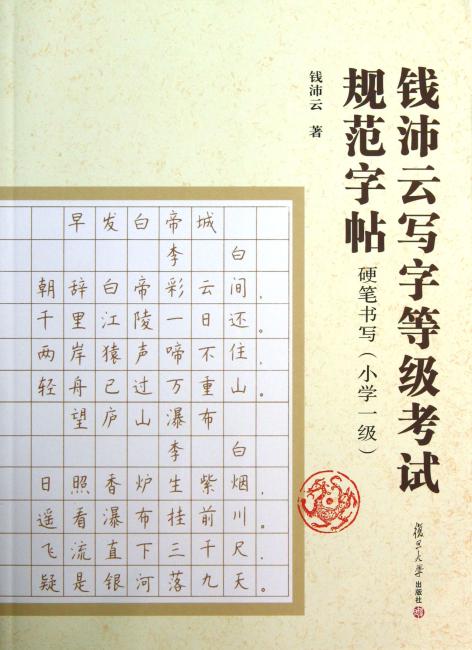 钱沛云写字等级考试
规范字帖
硬笔书写（小学一级）
钱沛云 著
早发白帝城
李白
朝辞白帝彩云间，
千里江陵一日还。
两岸猿声啼不住，
轻舟已过万重山。
望庐山瀑布
李白
日照香炉生紫烟，
遥看瀑布挂前川。
飞流直下三千尺，
疑是银河落九天。
復旦大学出版社